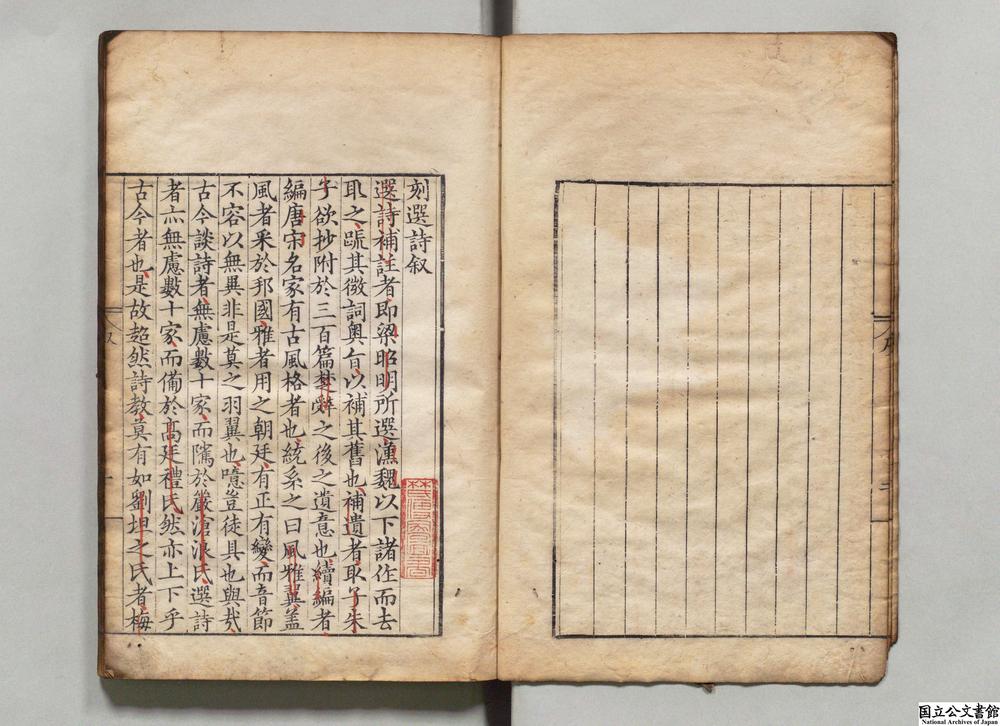 刻選詩叙
選詩補註者即梁昭明所選漢魏以下諸作而去
取之䟽其微詞奧㫖以補其舊也補遺者取子朱
子欲抄附於三百篇楚辭之後之遺意也續編者
編唐宋名家有古風格者也統系之曰風雅翼盖
風者采於邦國雅者用之朝廷有正有變而音節
不容以無異非是莫之羽翼也噫豈徒具也與㢤
古今談詩者無慮數十家而隲於嚴滄浪氏選詩
者亦無慮數十家而備於高廷禮氏然亦上下乎
古今者也是故超然詩教莫有如劉坦之氏者梅
国立公文書館
National Archives of Japan